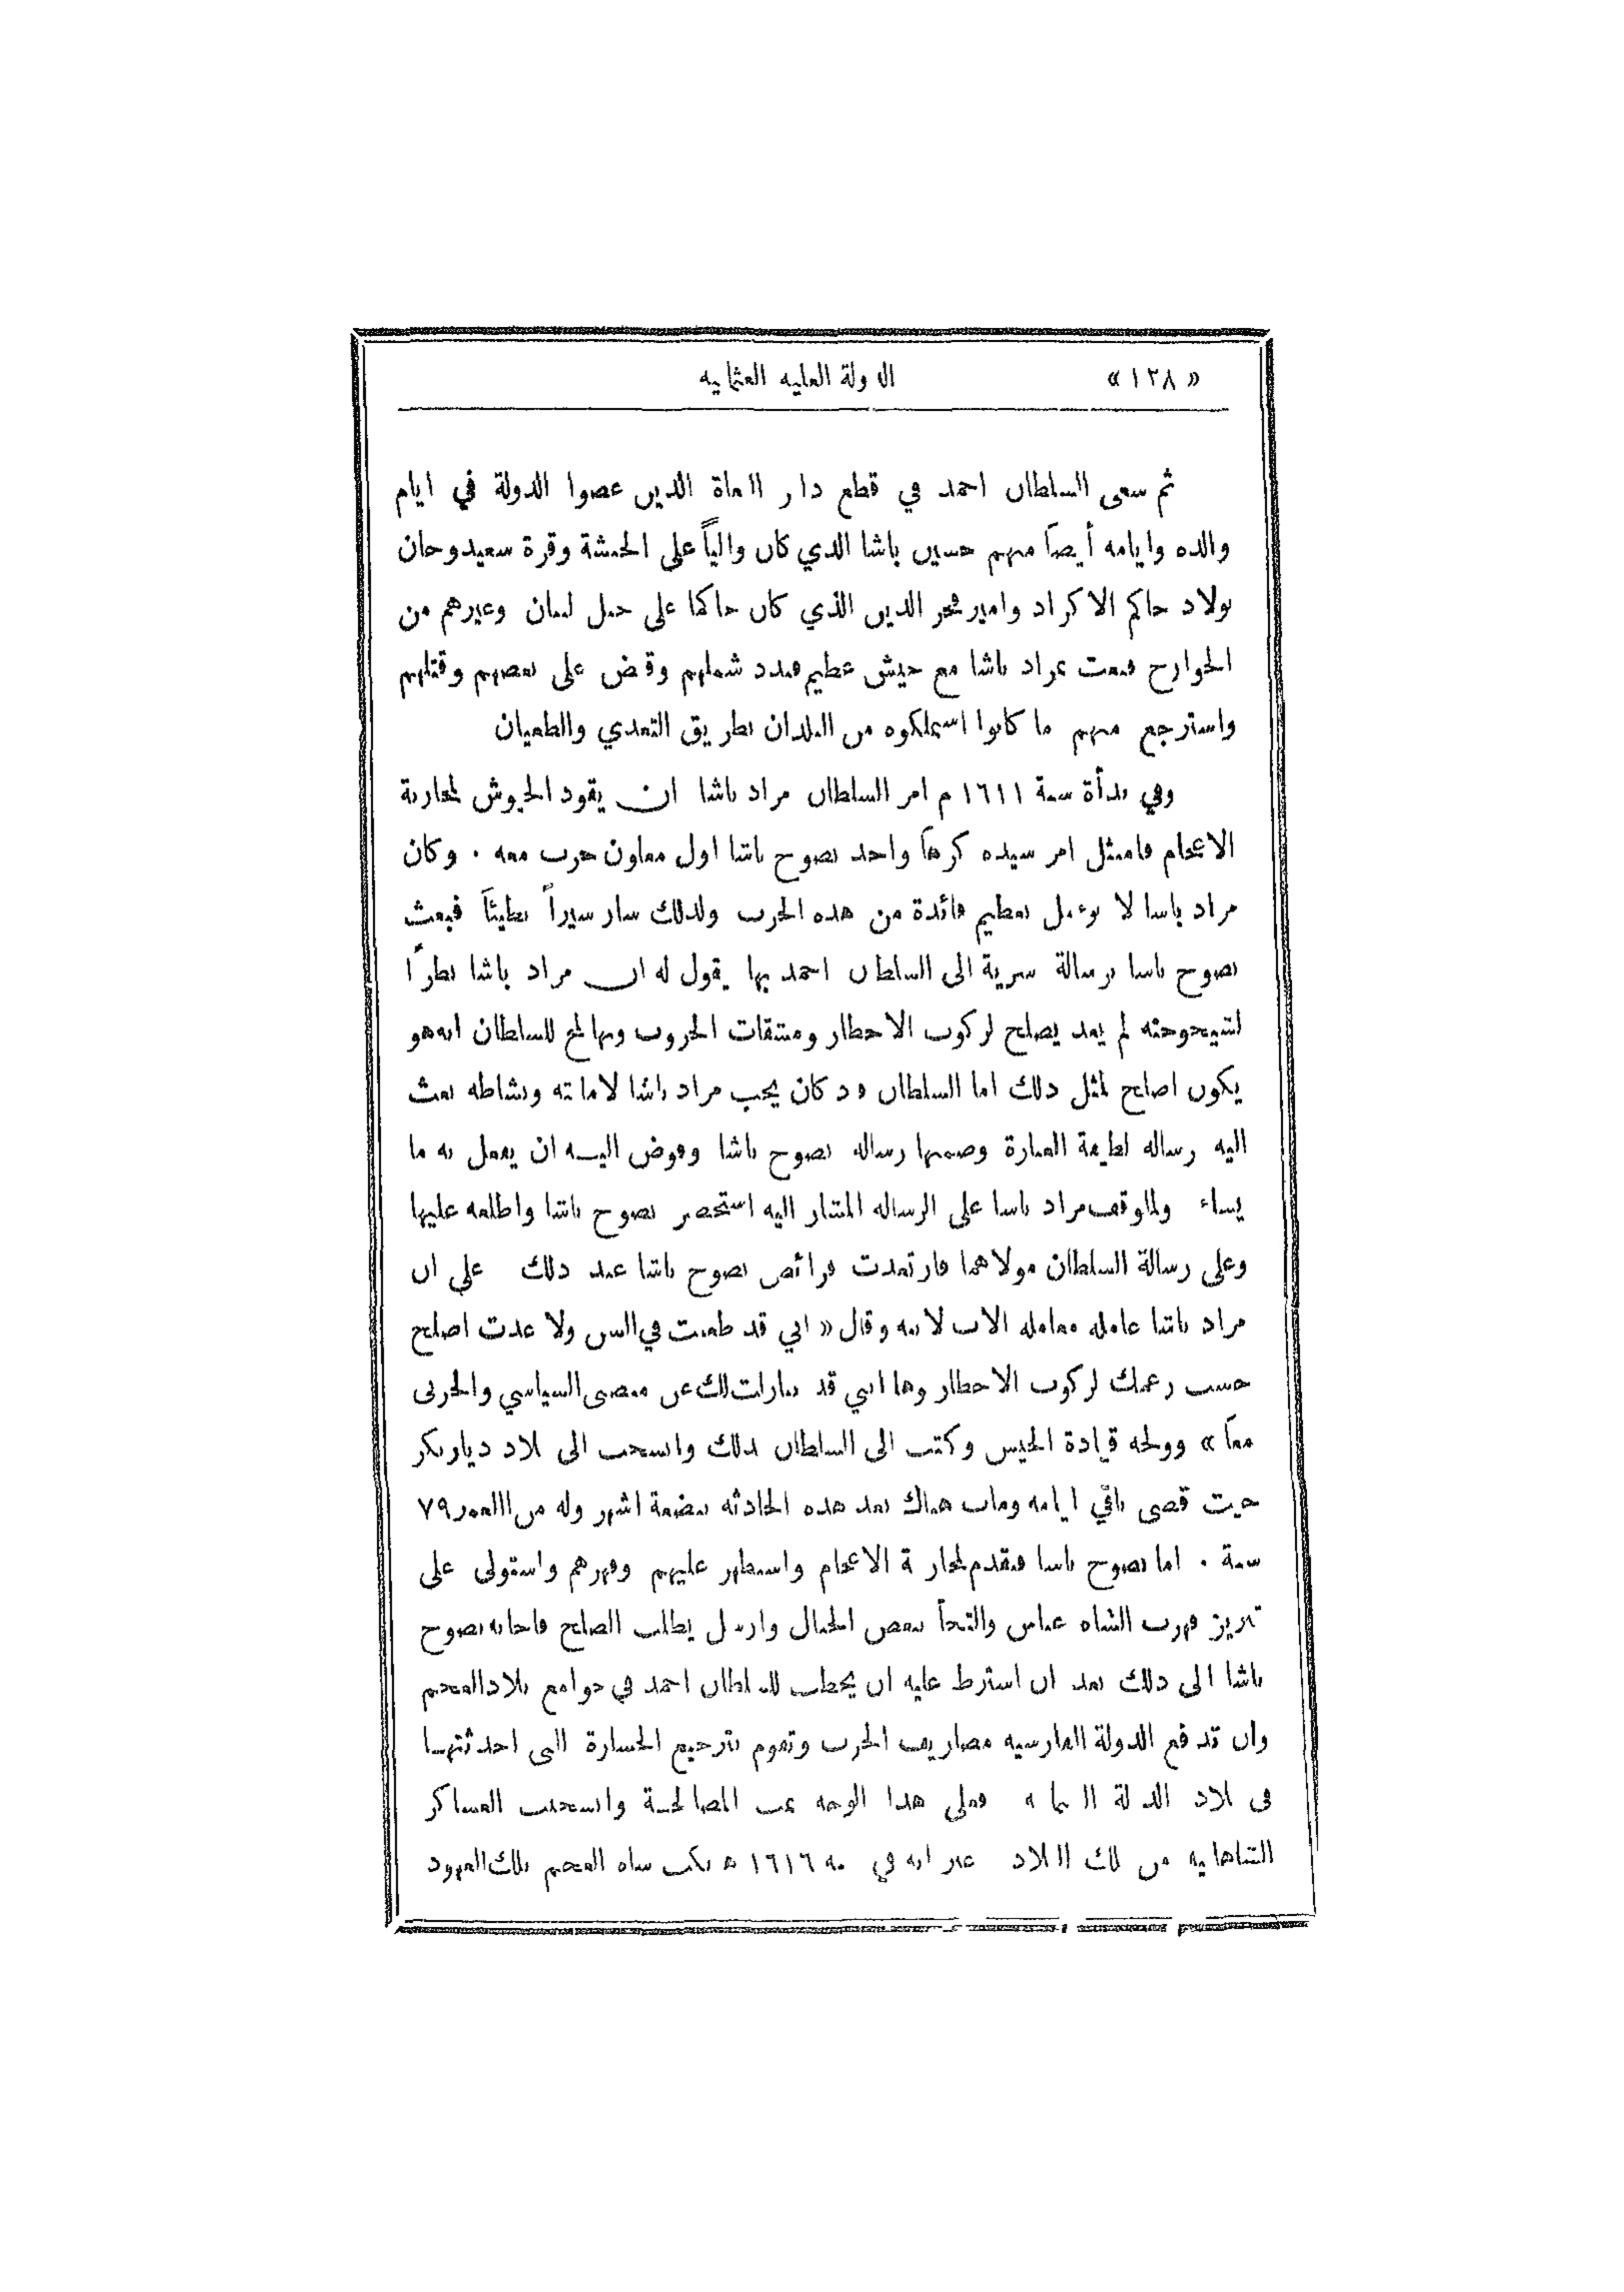 « ١٢٨ » الدولة العلية العثمانية
ثم سعى السلطان احمد في قطع دابر البغاة الذين عصوا الدولة في ايام
والده وايامه أيضاً منهم حسين باشا الذي كان والياً على الحبشة وقرة سعيد وجان
بولاد حاكم الاكراد وامير فخر الدين الذي كان حاكما على جبل لبنان وغيرهم من
الخوارج فبعث بمراد باشا مع جيش عظيم فبدد شملهم وقبض على بعضهم وقتلهم
واسترجع منهم ما كانوا استملكوه من البلدان بطريق التعدي والطغيان
وفي بدأة سنة ١٦١١ م امر السلطان مراد باشا ان يقود الجيوش لمحاربة
الاعجام فامتثل امر سيده كرهاً واخذ نصوح باشا اول معاون حرب معه . وكان
مراد باشا لا يوءمل بعظيم فائدة من هذه الحرب ولذلك سار سيراً بطيئاً فبعث
نصوح باشا برسالة سرية الى السلطان احمد بها يقول له ان مراد باشا نظراً
لشيخوخته لم يعد يصلح لركوب الاخطار ومشقات الحروب وبها لمح للسلطان انه هو
يكون اصلح لمثل ذلك اما السلطان فقد كان يحب مراد باشا لامانته ونشاطه بعث
اليه رسالة لطيفة العبارة وضمنها رسالة نصوح باشا وفوض اليه ان يفعل به ما
يشاء ولما وقف مراد باشا على الرسالة المشار اليه استحضر نصوح باشا واطلعه عليها
وعلى رسالة السلطان مولاهما فارتعدت فرائص نصوح باشا عند ذلك على ان
مراد باشا عامله معاملة الاب لابنه وقال « اني قد طعنت في السن ولا عدت اصلح
حسب زعمك لركوب الاخطار وها انني قد تنازلت لك عن منصبي السياسي والحربي
معاً » وولجه قيادة الجيش وكتب الى السلطان بذلك وانسحب الى بلاد ديار بكر
حيث قضى باقي ايامه ومات هناك بعد هذه الحادثة ببضعة اشهر وله من العمر ٧٩
سنة . اما نصوح باشا فتقدم لمحاربة الاعجام واستظهر عليهم وقهرهم واستولى على
تبريز فهرب الشاه عباس والتجأ ببعض الجبال وارسل يطلب الصلح فاجابه نصوح
باشا الى ذلك بعد ان اشترط عليه ان يخطب للسلطان احمد في جوامع بلاد العجم
وان تدفع الدولة الفارسية مصاريف الحرب وتقوم بترجيع الخسارة التي احدثتها
في بلاد الدولة العثمانية فعلى هذا الوجه تمت المصالحة وانسحبت العساكر
الشاهانية من تلك البلاد غير انه في سنة ١٦١٦ م نكث شاه العجم بتلك العهود